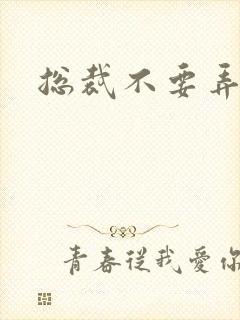 总裁不要弄
青春从我爱你